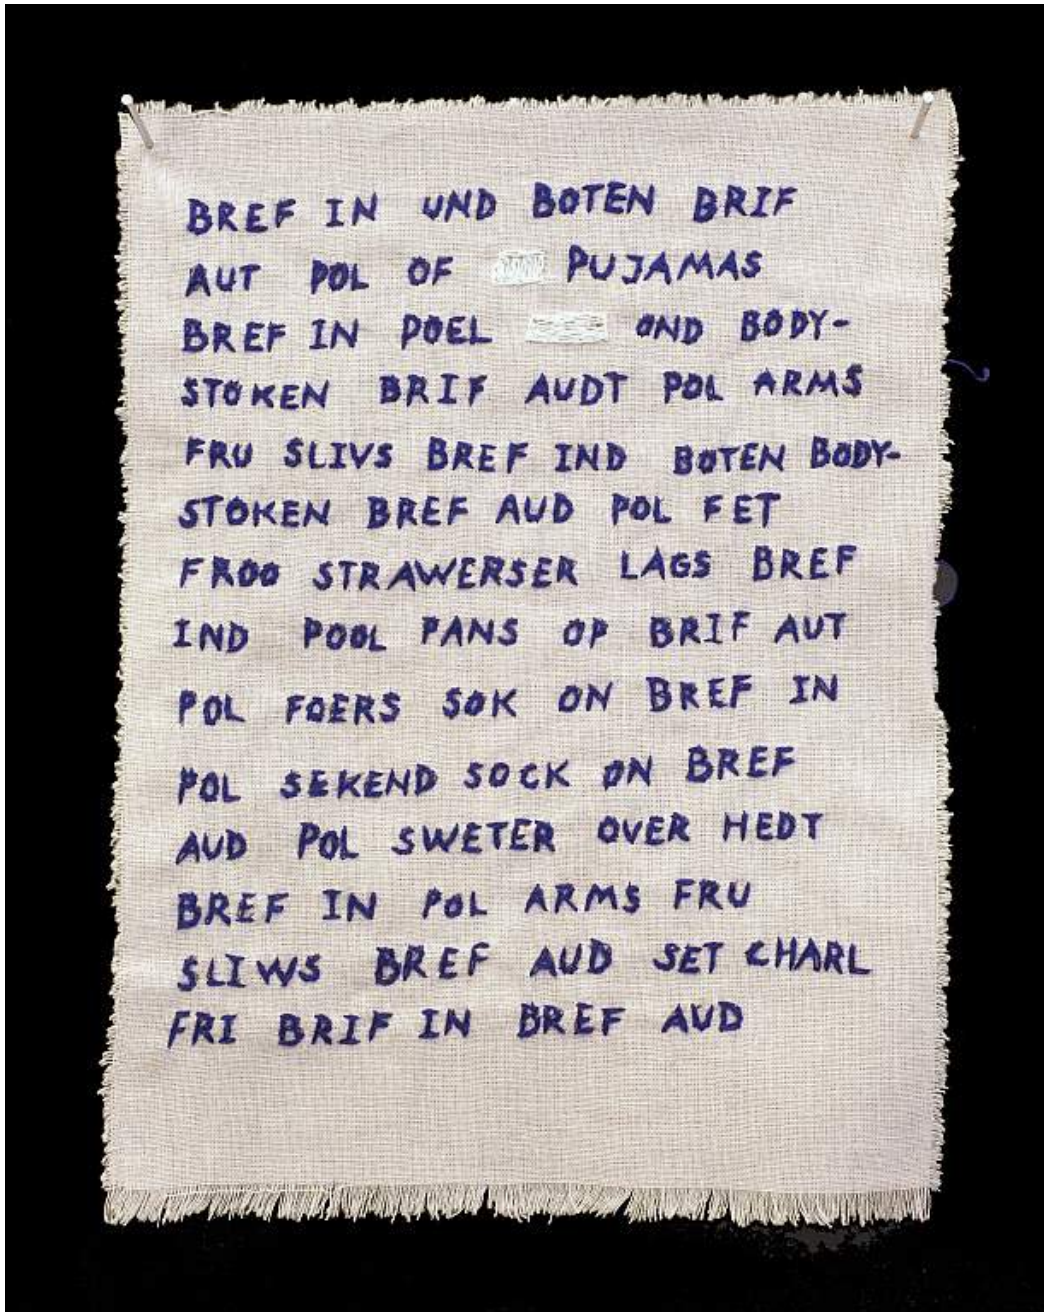 BREF IN UND BOTEN BRIF
AUT POL OF PUJAMAS
BREF IN POEL OND BODY-
STOKEN BRIF AUDT POL ARMS
FRU SLIVS BREF IND BOTEN BODY-
STOKEN BREF AUD POL FET
FROO STRAWERSER LAGS BREF
IND POOL PANS OP BRIF AUT
POL FOERS SOK ON BREF IN
POL SEKEND SOCK ON BREF
AUD POL SWETER OVER HEDT
BREF IN POL ARMS FRU
SLIWS BREF AUD SET CHARL
FRI BRIF IN BREF AUD